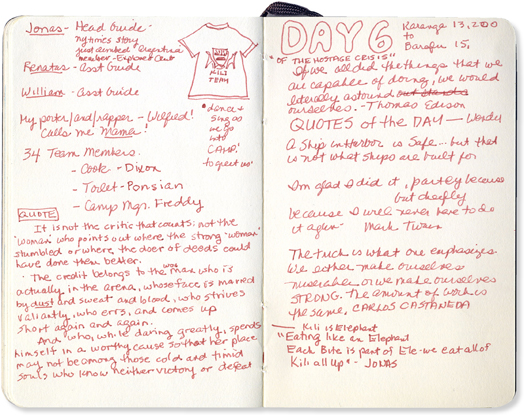 Jonas- Head Guide-
nytimes story
just climbed Argentina
member - Explorers Club
Renatas - Asst Guide
William - Asst Guide
My porter/and/rapper - Wilfied!
Calls me Mama!
34 Team Members:
- Cook - Dixon
- Toilet - Ponsian
- Camp Mgr. Freddy
KILI
TEAM
• dance +
sing as
we go
into
CAMP!
to greet us!
QUOTE
It is not the critic that counts: not the
'woman' who points out where the strong 'woman'
stumbled or where the doer of deeds could
have done them better.
• The credit belongs to the man who is
wo
actually in the arena, whose face is marred
by dust and sweat and blood, who strives
valiantly, who errs, and comes up
short again and again.
And who, while daring greatly, spends
himself in a worthy cause so that her place
may not be among those cold and timid
souls who know neither victory or defeat
DAY 6
Karanga 13,200
to
Barafu 15,
"OF THE HOSTAGE CRISIS"
If we all did the things that we
are capable of doing, we would
literally astound out stands
ourselves. - Thomas Edison
QUOTES of the DAY - Wendy
A Ship in Harbor is Safe... but that
is not what ships are built for
I'm glad I did it, partly because
but chiefly
because I will never have to do
it again - Mark Twain
The trick is what one emphasizes
We either make ourselves
miserable or we make ourselves
STRONG. The amount of work is
the same. CARLOS CASTANEDA
Kili is Elephant
"Eating like an Elephant
Each Bite is part of Ele - we eat all of
Kili all up" - JONAS